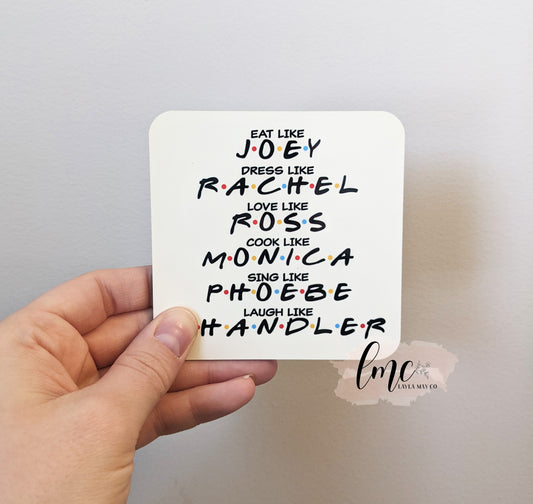 EAT LIKE
J•O•E•Y
DRESS LIKE
R•A•C•H•E•L
LOVE LIKE
R•O•S•S
COOK LIKE
M•O•N•I•C•A
SING LIKE
P•H•O•E•B•E
LAUGH LIKE
H•A•N•D•L•E•R
lmc
LAYLA MAY CO